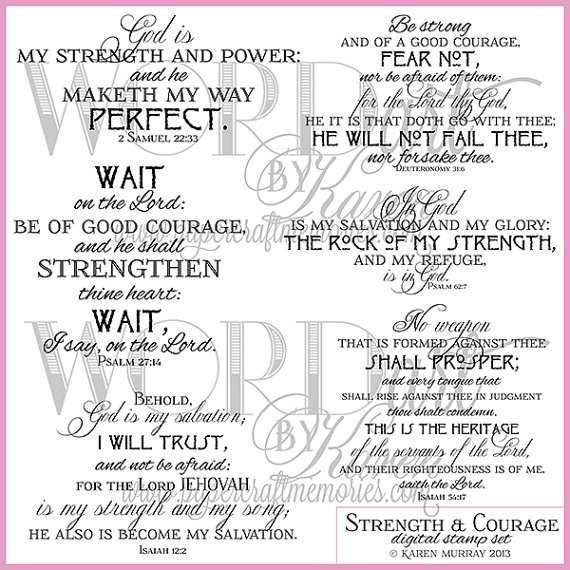 God is
MY STRENGTH AND POWER:
and he
MAKETH MY WAY
PERFECT.
2 SAMUEL 22:33
WAIT
on the Lord:
BE OF GOOD COURAGE,
and he shall
STRENGTHEN
thine heart:
WAIT,
I say, on the Lord.
PSALM 27:14
BEHOLD,
God is my salvation;
I WILL TRUST,
and not be afraid:
FOR THE LORD JEHOVAH
is my strength and my song;
HE ALSO IS BECOME MY SALVATION.
ISAIAH 12:2
Be strong
AND OF A GOOD COURAGE,
FEAR NOT,
nor be afraid of them:
for the Lord thy God,
HE IT IS THAT DOTH GO WITH THEE;
HE WILL NOT FAIL THEE,
nor forsake thee.
DEUTERONOMY 31:6
In God
IS MY SALVATION AND MY GLORY:
THE ROCK OF MY STRENGTH,
AND MY REFUGE,
is in God.
PSALM 62:7
No weapon
THAT IS FORMED AGAINST THEE
SHALL PROSPER;
and every tongue that
SHALL RISE AGAINST THEE IN JUDGMENT
thou shalt condemn.
THIS IS THE HERITAGE
of the servants of the Lord,
AND THEIR RIGHTEOUSNESS IS OF ME,
saith the Lord.
ISAIAH 54:17
STRENGTH & COURAGE
digital stamp set
© KAREN MURRAY 2013
WORD art
BY Karen
www.papercraftmemories.com
WORD art
BY Karen
www.papercraftmemories.com